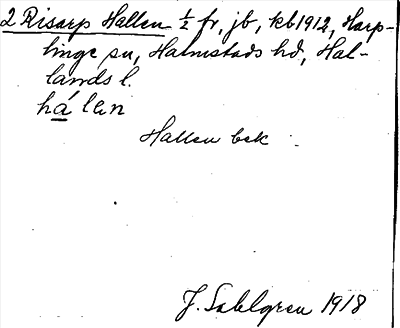 2 Risarp Hallen ½ fr, jb, kb 1912, Harp-
linge sn, Halmstads hd, Hal-
lands l.
hálεn
Hallen bek
J. Sahlgren 1918